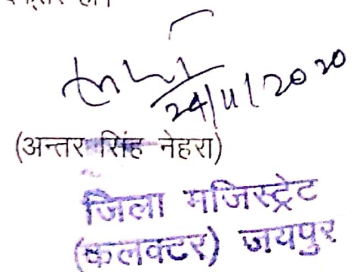 24/11/2020
(अन्तर सिंह नेहरा)
जिला मजिस्ट्रेट
(कलक्टर) जयपुर